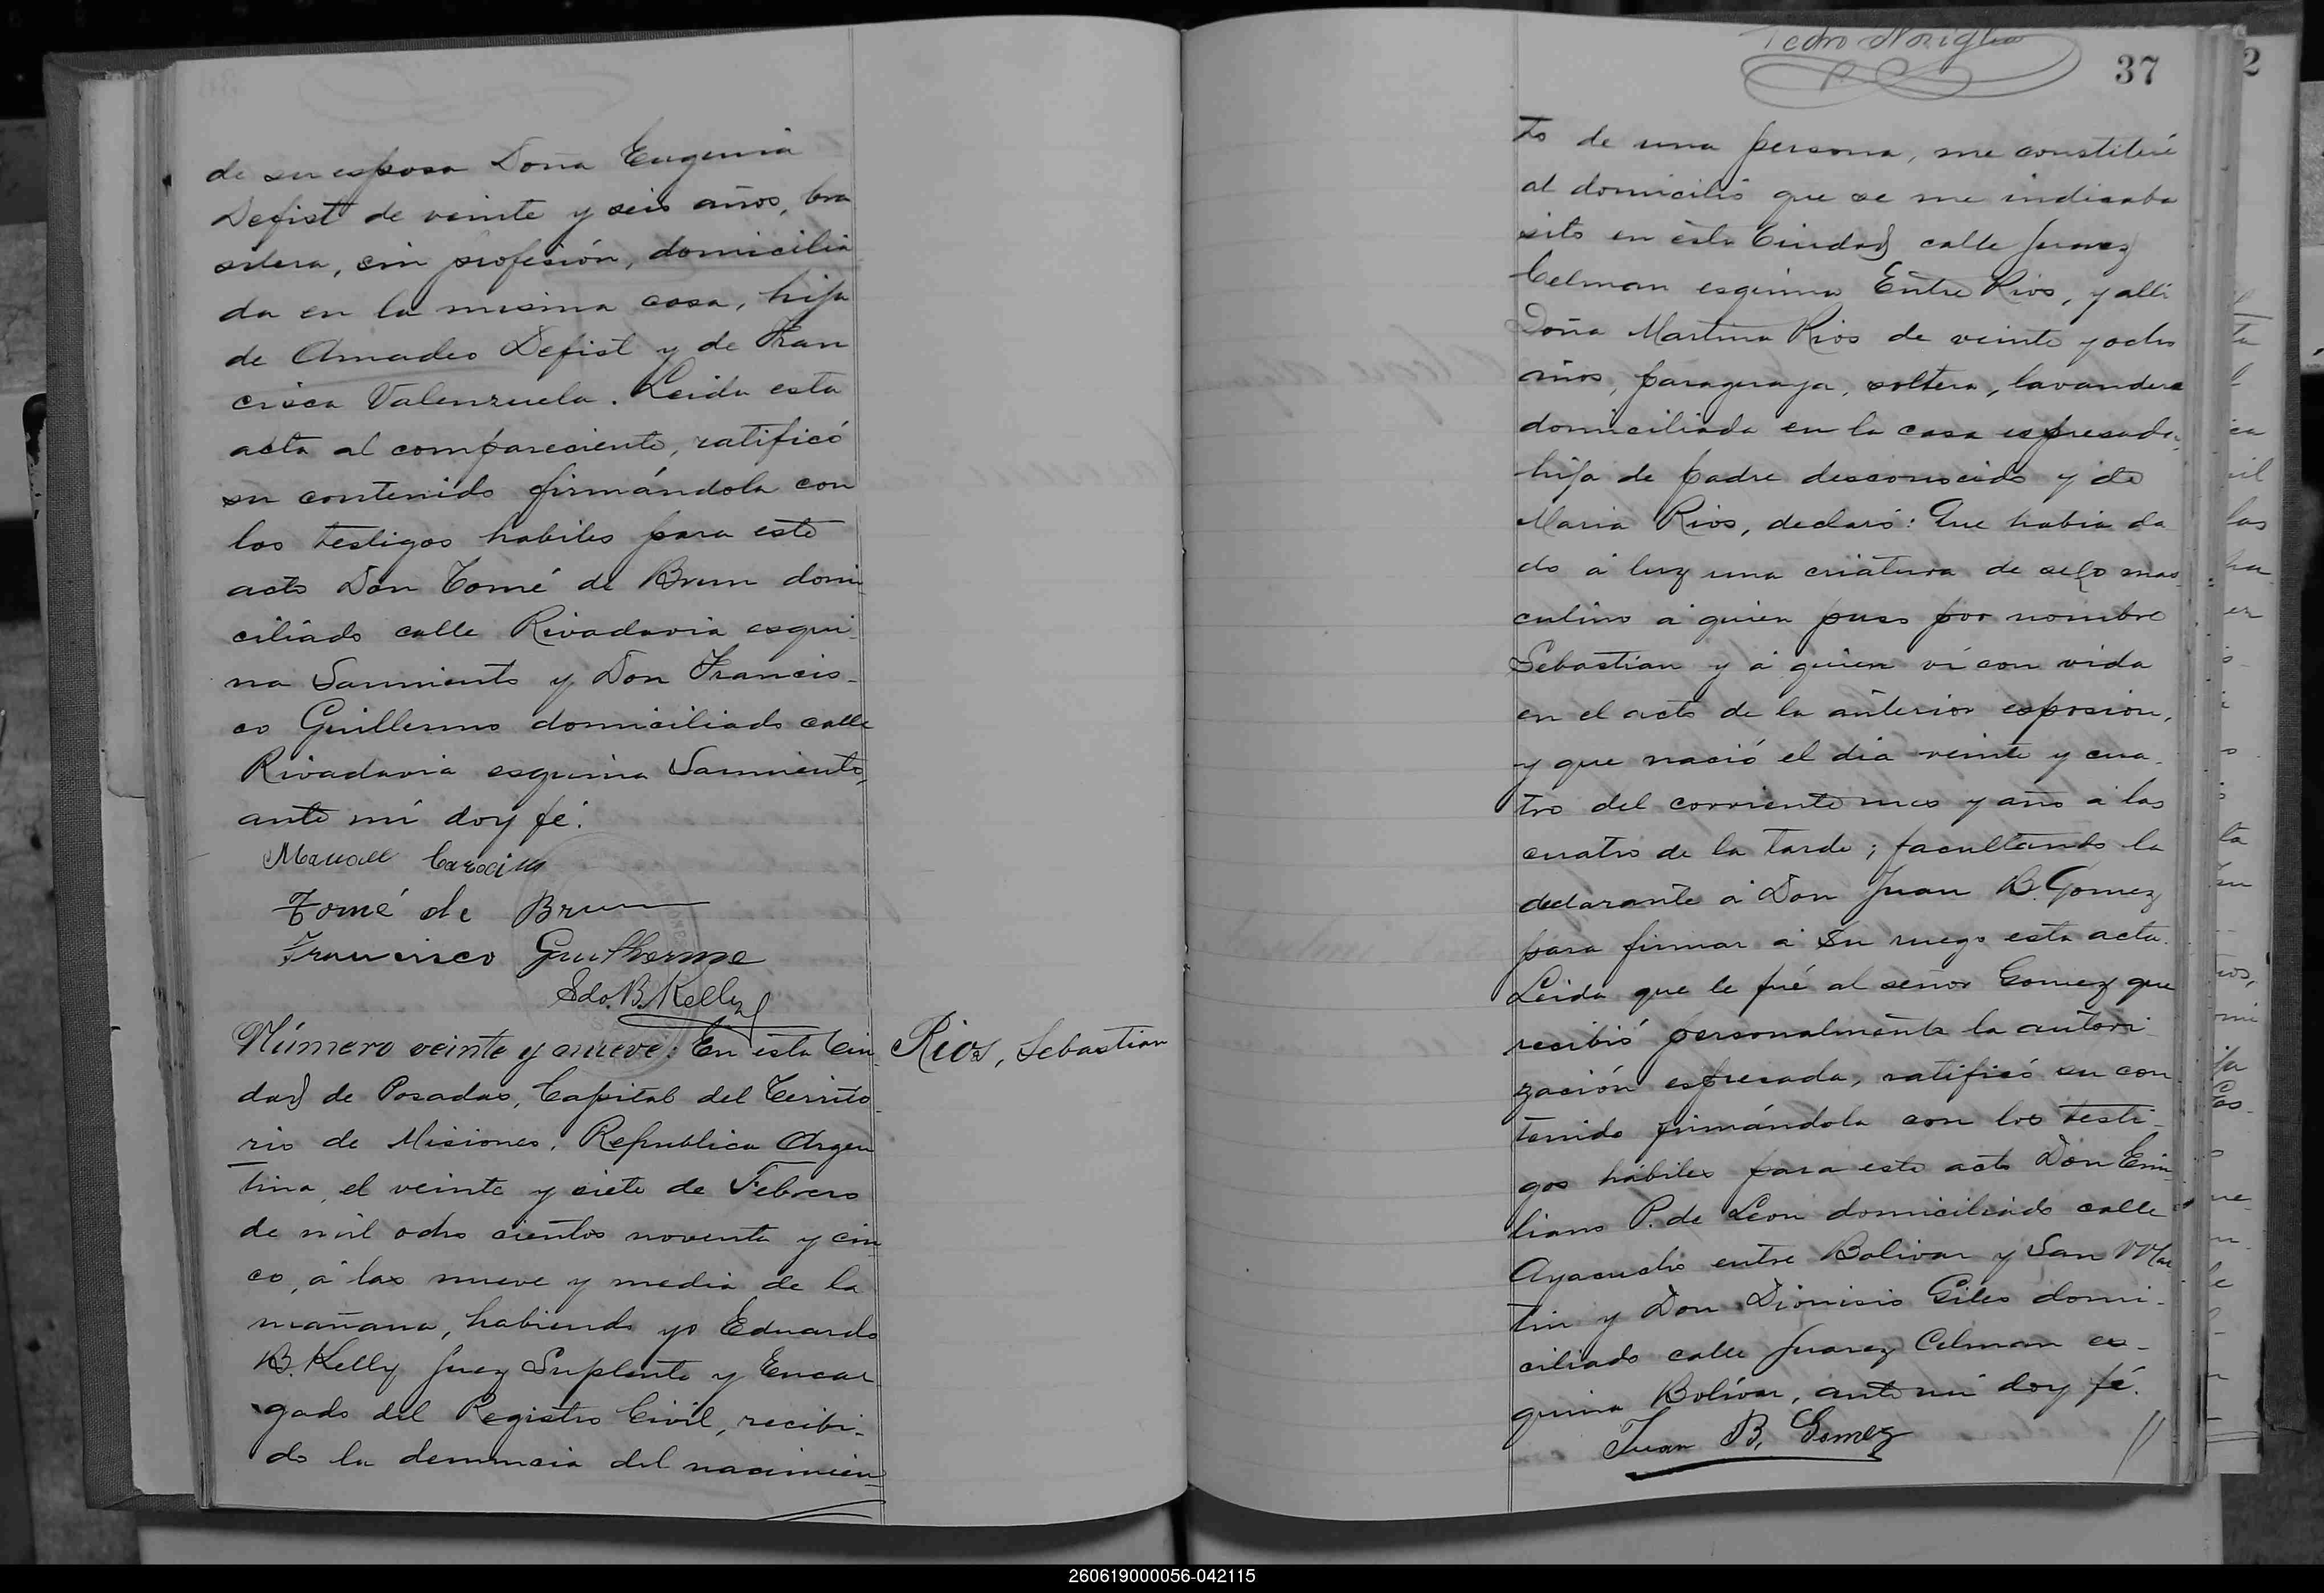 de su esposa Doña Eugenia
Defist de veinte y seis años, bra
silera, sin profesión, domicilia
da en la misma casa, hija
de Amadeo Defist y de Fran
cisca Valenzuela. Leida esta
acta al compareciente, ratificó
su contenido firmándola con
los testigos habiles para este
acto Don Tomé de Brum domi
ciliado calle Rivadavia esqui
na Sarmiento y Don Francis-
co Guillermo domiciliado calle
Rivadavia esquina Sarmiento,
ante mi doy fé.
Manoel
Tomé de Brum
Francisco Guilherme
Edo. B. Kelly
Número veinte y nueve: En esta Ciu
dad de Posadas, Capital del Territo
rio de Misiones, Republica Argen
tina, el veinte y siete de Febrero
de mil ocho cientos noventa y cin
co, á las nueve y media de la
mañana, habiendo yo Eduardo
B. Kelly Juez Suplente y Encar
gado del Registro Civil, recibi-
do la denuncia del nacimien
Rios, Sebastian
Pedro
37
to de una persona, me constituí
al domicilio que se me indicaba
sito en esta Ciudad calle Juarez
Celman esquina Entre Rios, y allí
Doña Martina Rios de veinte y ocho
años, paraguaya, soltera, lavandera
domiciliada en la casa espresada,
hija de padre desconocido y de
Maria Rios, declaró: Que habia da
do á luz una criatura de sexo mas
culino á quien puso por nombre
Sebastian y á quien ví con vida
en el acto de la anterior esposion,
y que nació el dia veinte y cua-
tro del corriente mes y año á las
cuatro de la tarde; facultando la
declarante á Don Juan B. Gomez
para firmar á su ruego esta acta.
Leida que le fué al señor Gomez que
recibió personalmente la autori
zación espresada, ratificó su con
tenido firmándola con los testi-
gos hábiles para este acto Don Emi
liano P. de Leon domiciliado calle
Ayacucho entre Bolivar y San Mar
tin y Don Dionisio Giles domi-
ciliado calle Juarez Celman es-
quina Bolívar, ante mi doy fé.
Juan B. Gomez
260619000056-042115